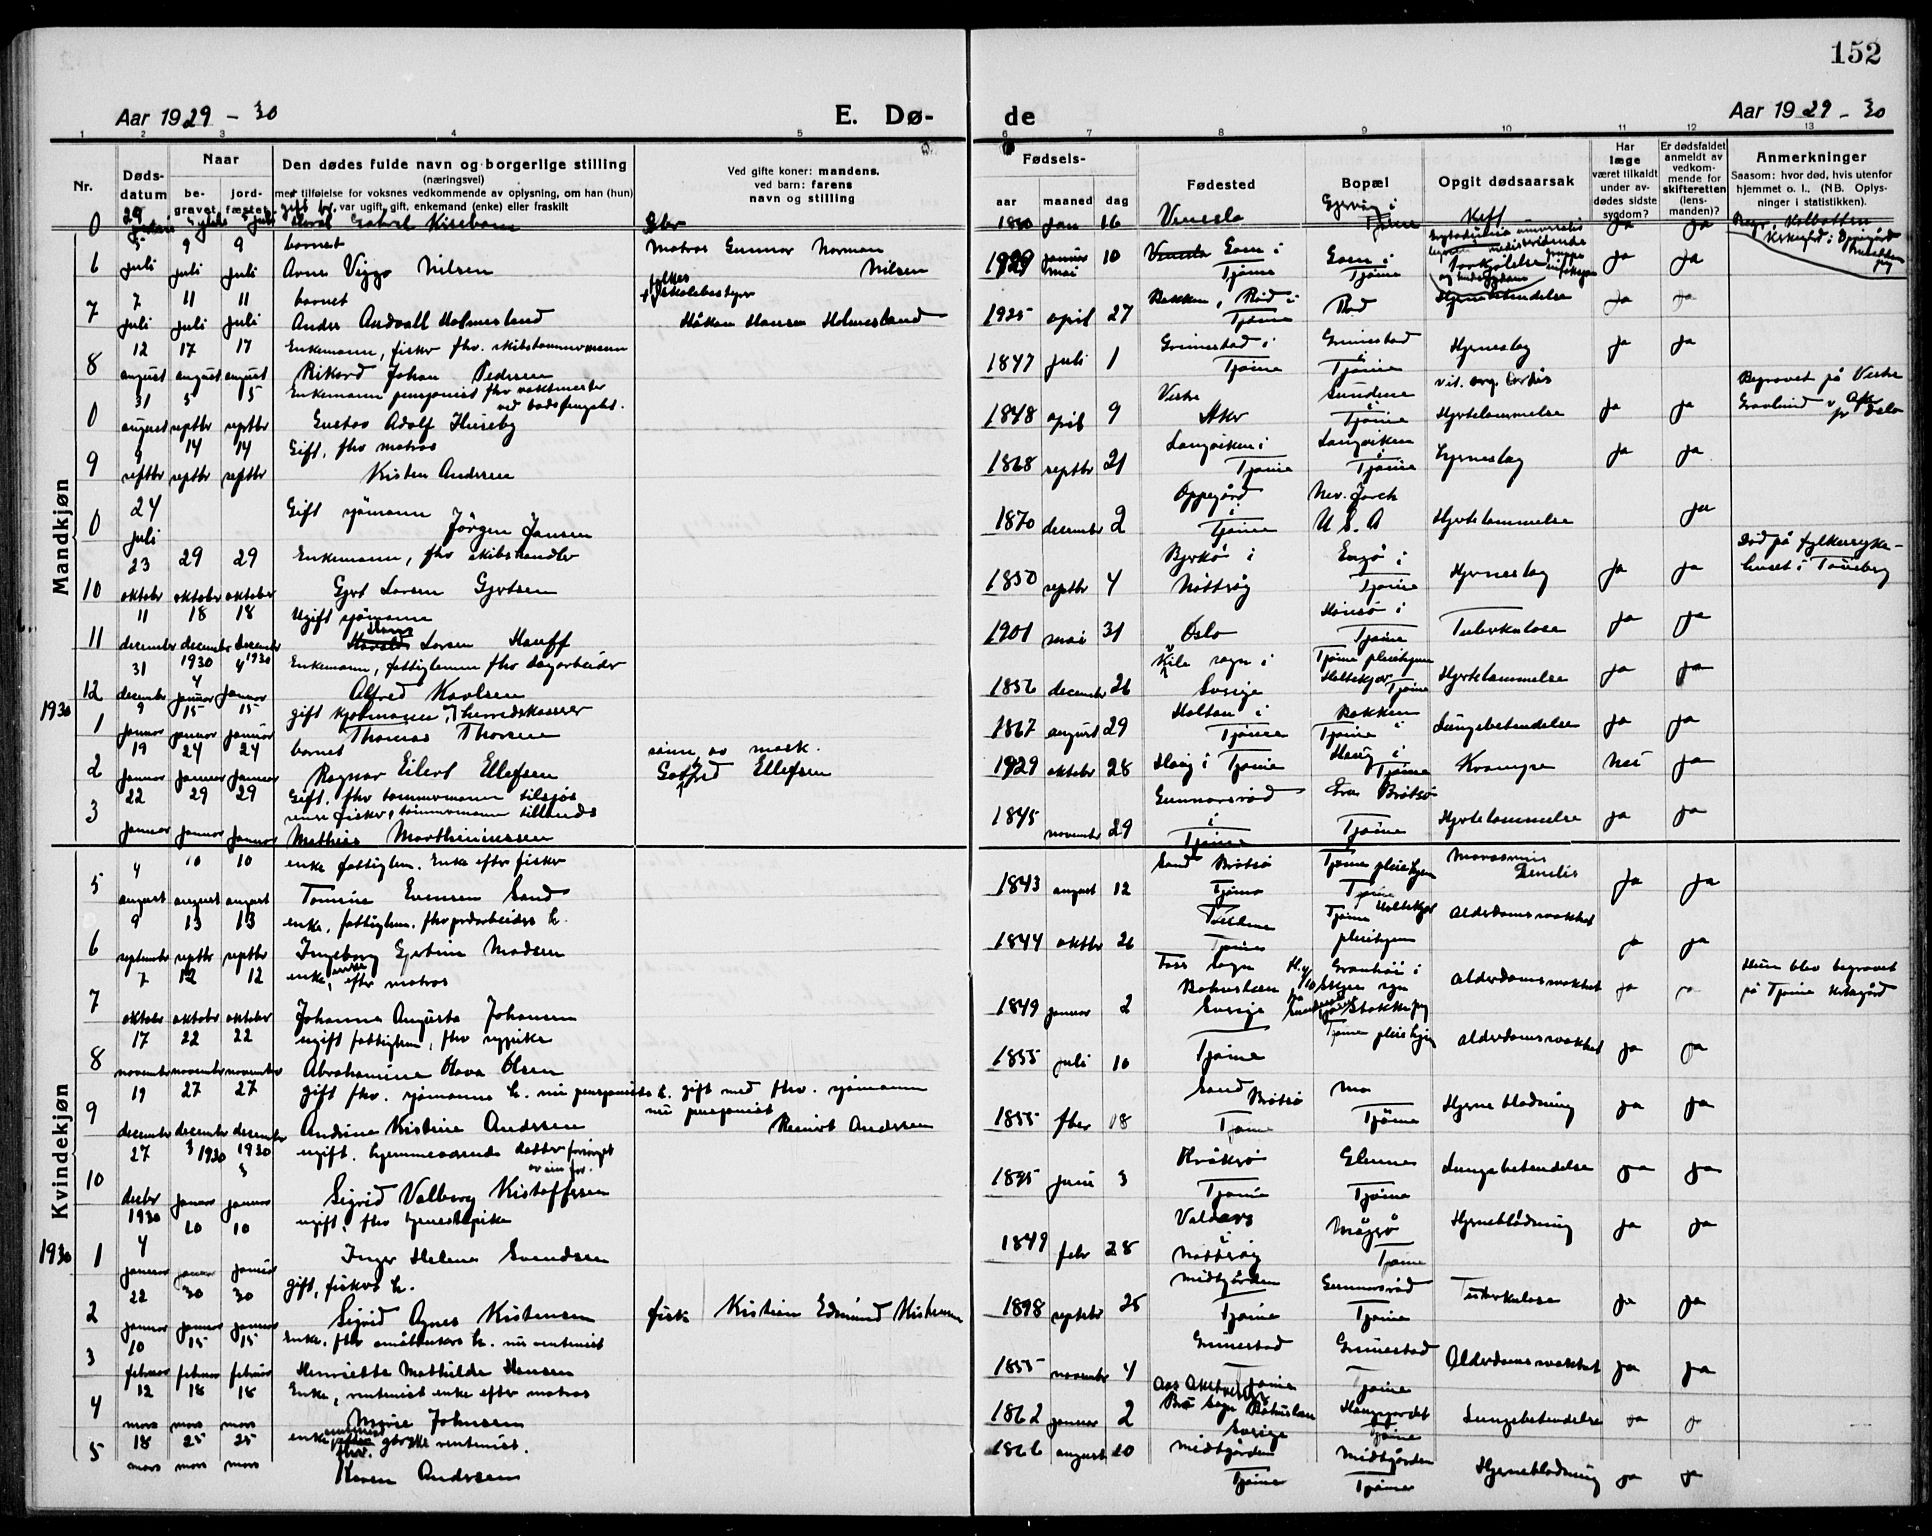 152
Aar 1929 - 30
E. Dø-
de
Aar 1929 - 30
1 2 3 4 5 6 7 8 9 10 11 12 13
Nr.
Døds-
datum
Naar
be-
gravet
jord-
fæstet
Den dødes fulde navn og borgerlige stilling
(næringsvei)
med tilføielse for voksnes vedkommende av oplysning, om han (hun)
var ugift, gift, enkemand (enke) eller fraskilt
Ved gifte koner: mandens,
ved barn: farens
navn og stilling
Fødsels-
aar maaned dag
Fødested
Bopæl
Opgit dødsaarsak
Har
læge
været tilkaldt
under av-
dødes sidste
sygdom?
Er dødsfaldet
anmeldt av
vedkom-
mende for
skifteretten
(lens-
manden)?
Anmerkninger
Saasom: hvor død, hvis utenfor
hjemmet o. l., (NB. Oplys-
ninger i statistikken).
Mandkjøn
0 1880 jan 16 Venesla Kræft ja ja
6 5 juli 9 juli 9 juli barnet
Arne Viggo Nilsen
Matros Gunnar Norman
Nilsen
1929 mai 10 Eom i Tjøme Eom i Tjøme ja ja
7 7 juli 11 juli 11 juli barnet
Håkon Hansen Holmesland
1925 april 27 Bakken, Rød i Tjøme Rød Hjernebetendelse ja ja
8 12 august 17 august 17 august Enkemann, fisker fhv. skibstømmermann
Rikard Johan Pedersen
1847 juli 1 Grimestad i Tjøme Grimestad i Tjøme Hjerneslag ja ja
0 31 august 5 septbr 5 septbr Enkemann pensjonist fhv vaktmester
ved bodsfengslet.
Gustav Adolf Huseby
1848 april 9 Vestre Aker Sundene i Tjøme vit. org. cordis
Hjertelammelse ja ja
Begravet på Vestre
Gravlund
9 9 septbr 14 septbr 14 septbr Gift, fhv matros
Kristen Andersen
1868 septbr 21 Langviken i Tjøme Langviken i Tjøme Hjerneslag ja ja
0 24 juli Gift sjømann
Jørgen Jansen
1870 december 2 Oppegård i Tjøme New. Jorck U.S.A Hjertelammelse ja
10 23 oktober 29 oktober 29 oktober Enkemann, fhv skibshandler
Gjert Larsen Gjertsen
1850 septbr 4 Bjerkø i Nøtterøy Engø i Tjøme Hjerneslag ja ja
Død på fylkessyke-
huset i Tønsberg
11 11 december 18 december 18 december Ugift sjømann
Hans Larsen Hauff
1901 mai 31 Oslo Hønsø i Tjøme Tuberkulose ja ja
12 31 december 1930 4 januar 4 1930 januar Enkemann, fattiglemm fhv dagarbeider
Alfred Karlsen
1856 december 26 Kile sogn i Sverige Tjøme pleiehjem
Holtekjær Tjøme Hjertelammelse ja ja
1930
1 9 januar 15 januar 15 januar gift kjøbmann, herredskasserer
Thomas Thorsen
1867 august 29 Holtan i Tjøme Bakken i Tjøme Lungebetendelse ja ja
2 19 januar 24 januar 24 januar barnet
Ragnar Eilert Ellefsen
sønn av mask.
Gotfred Ellefsen
1929 oktober 28 Haug i Tjøme Haug i Tjøme Krampe Nei ja
3 22 januar 29 januar 29 januar Gift, fhv tømmermann tilsjøs
senere fisker, tømmermann tillands
Mathias Marthinussen
1845 november 29 Gunnarsrød i Tjøme Brøtsø Tjøme Hjertelammelse ja ja
Kvindekjøn
5 4 august 10 august 10 august enke fattiglem. Enke efter fisker
Tomine Evensen Sand
1843 august 12 Sand Brøtsø Tjøme Tjøme pleiehjem Tjøme Marasmus senilis ja ja
6 9 september 13 septbr 13 septbr enke, fattiglem.
Ingeborg Gjertine Madsen
1844 oktbr 26 Tjøme Tjøme Holtekjær pleiehjem Alderdomssvakhet ja ja
7 7 oktober 12 oktober 12 oktober enke, efter matros
Johanne Augusta Johansen
1849 januar 2 Sogn Bohuslen Sverige Alderdomssvakhet ja
Hun blev begravet
på Tjøme kirkegård
8 17 november 22 november 22 november ugift fattiglem, fhv sypike
Abrahamine Olava Olsen
1855 juli 10 Tjøme Tjøme pleiehjem Alderdomssvakhet ja ja
9 19 december 27 december 27 december gift fhv. sjømanns h. nu pensjonists h.
Andrine Kristine Andersen
gift med fhv. sjømann
nu pensjonist
Reinert Andersen
1855 feber 18 Sand Brøtsø Tjøme Mo Tjøme Hjerneblødning ja ja
10 27 decbr 3 1930 januar 1930 3 januar ugift. hjemmeværende datter forsørget
av sin far.
Sigrid Valborg Kristoffersen
1895 juni 3 Kråkø Tjøme Glennes Tjøme Lungebetendelse ja ja
1930
1 1930 4 januar 10 januar 10 januar ugift, fhv tjenestepike
Inger Helene Svendsen
1849 febr 28 Nøtterøy Mågerø Tjøme Hjerneblødning ja ja
2 22 januar 30 januar 30 januar gift, fiskers h.
Sigrid Agnes Kristensen
fisker Kristian Edmund Kristensen
1898 septebr 25 Midtgården Tjøme Gunnarsrød Tjøme Tuberkulose ja ja
3 10 februar 15 februar 15 februar Enke, fhv småbrukers h. nu rentenist
Henriette Mathilde Hansen
1855 november 4 Grimestad Tjøme Grimestad Tjøme Alderdomssvakhet ja ja
4 12 mars 18 mars 18 mars Enke, rentenist enke efter matros
Marie Johnsen
1862 januar 2 Bro sogn Bohuslen Sverige Tjøme Lungebetendelse ja ja
5 18 mars 25 mars 25 mars enke rentenist.
Karen Andersen
1866 august 10 Midtgården Tjøme Midtgården Tjøme Hjerneblødning ja ja